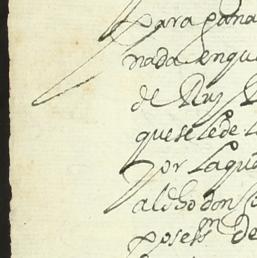 para gana
nada en qu
de Ruy
que se le de
Por la qu
al dho don
poses.on de